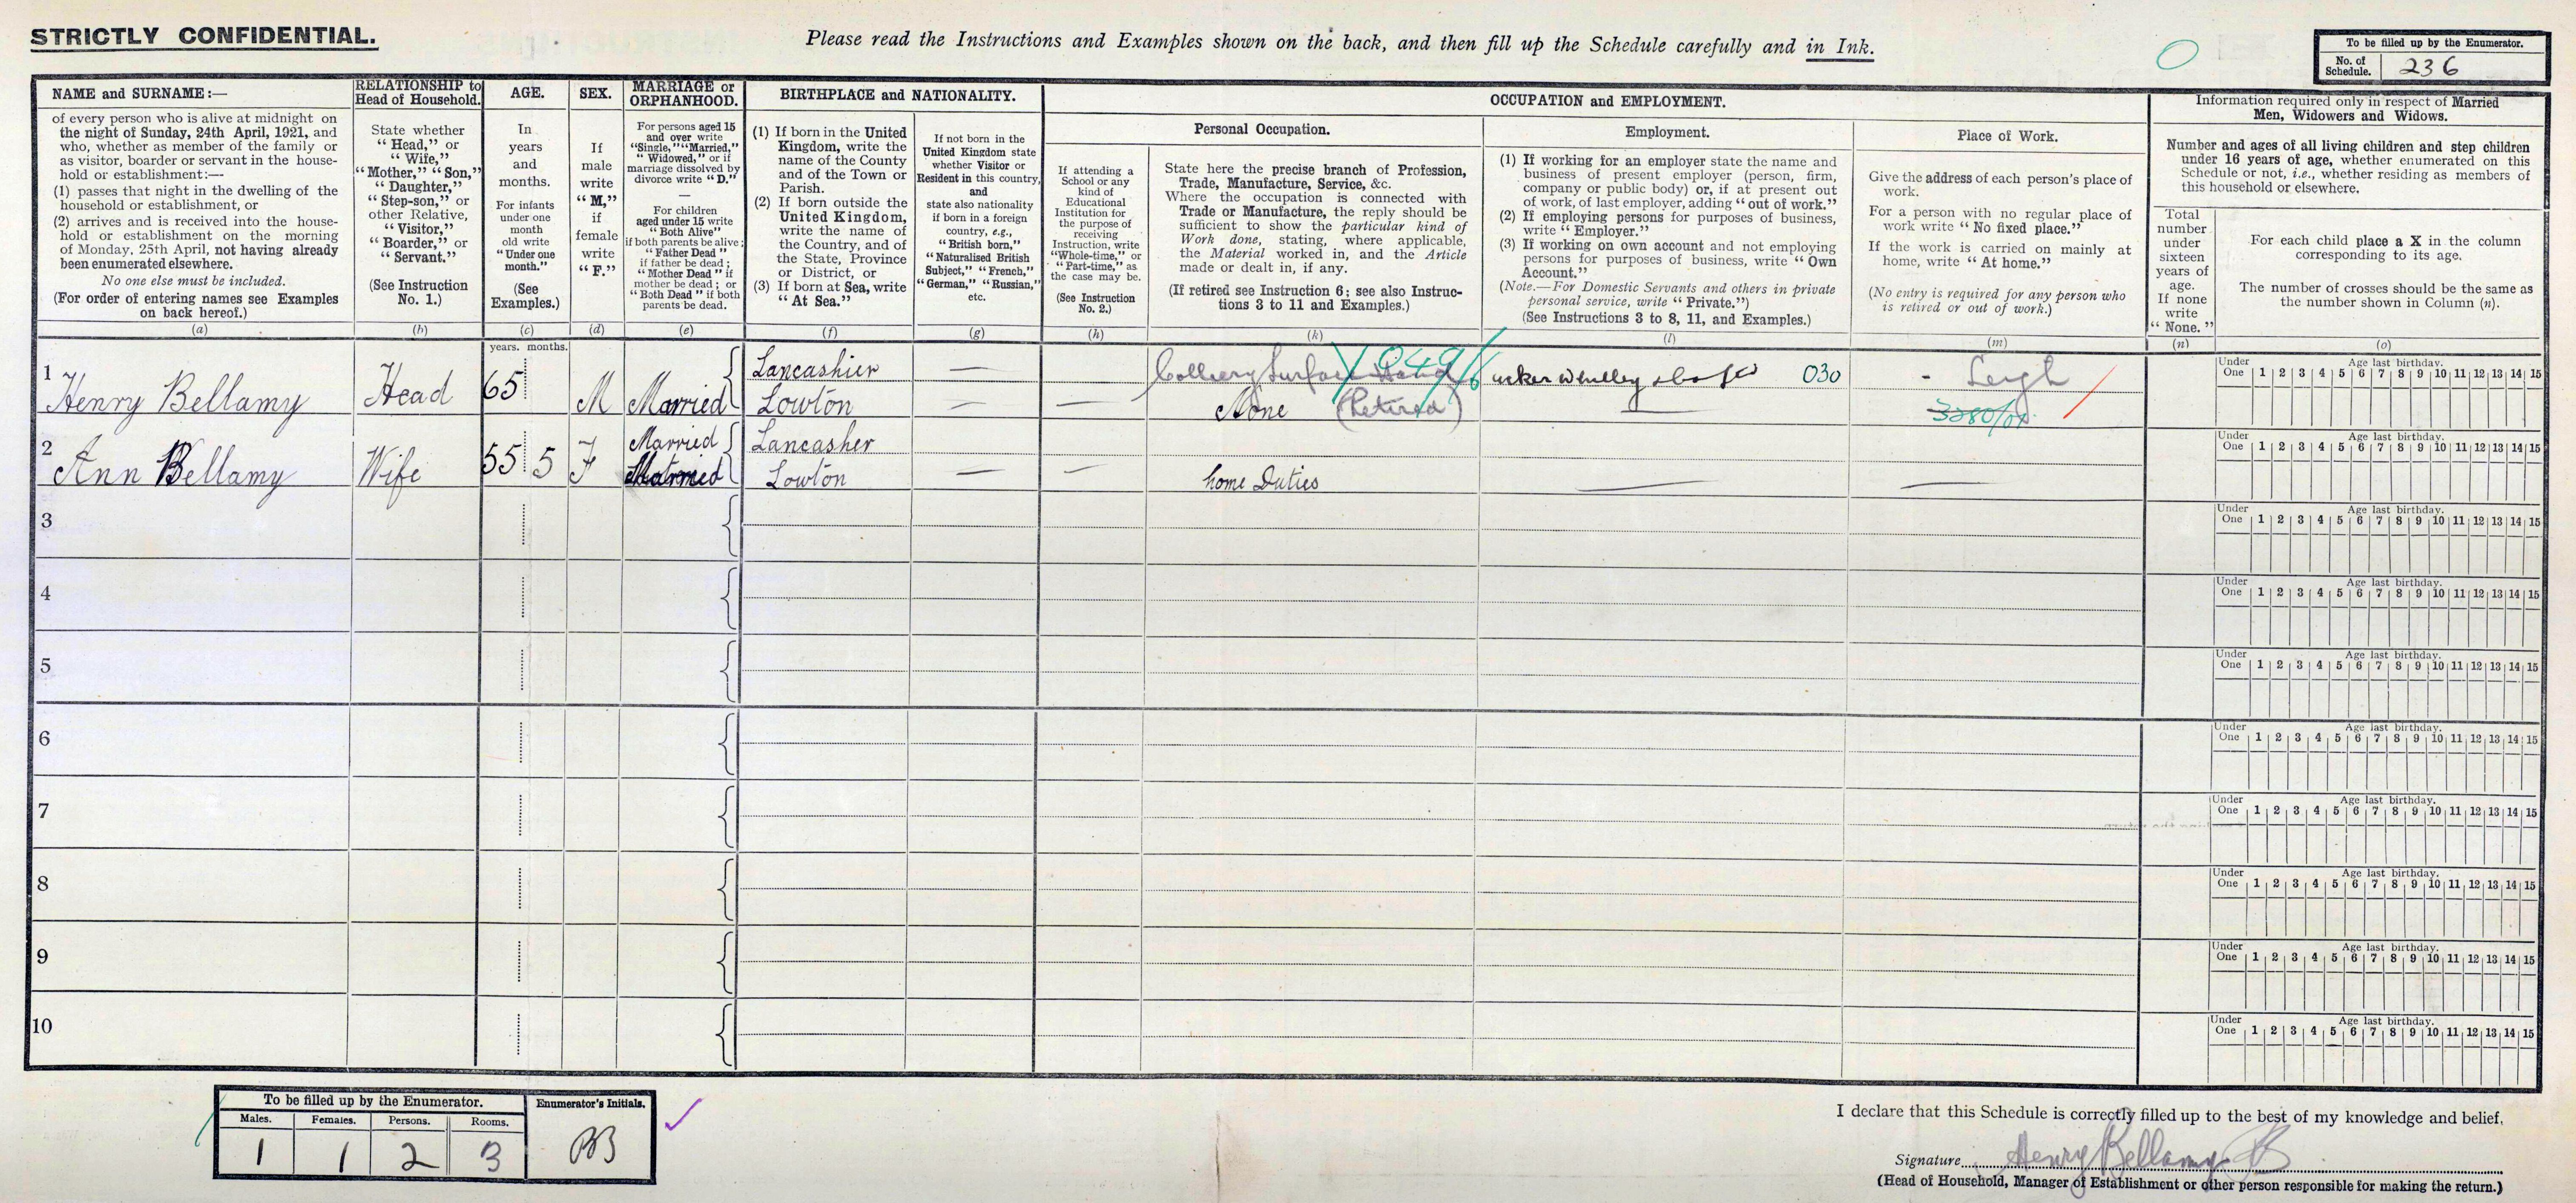 STRICTLY CONFIDENTIAL.
Please read the Instructions and Examples shown on the back, and then fill up the Schedule carefully and in Ink.
To be filled up by the Enumerator.
No. of Schedule. 236
NAME and SURNAME:—
of every person who is alive at midnight on
the night of Sunday, 24th April, 1921, and
who, whether as member of the family or
as visitor, boarder or servant in the house-
hold or establishment:—
(1) passes that night in the dwelling of the
household or establishment, or
(2) arrives and is received into the house-
hold or establishment on the morning
of Monday, 25th April, not having already
been enumerated elsewhere.
No one else must be included.
(For order of entering names see Examples
on back hereof.)
(a)
RELATIONSHIP to
Head of Household.
State whether
"Head," or
"Wife,"
"Mother," "Son,"
"Daughter,"
"Step-son," or
other Relative,
"Visitor,"
"Boarder," or
"Servant."
(See Instruction
No. 1.)
(b)
AGE.
In
years
and
months.
For infants
under one
month
old write
"Under one
month."
(See
Examples.)
(c)
SEX.
If
male
write
"M,"
if
female
write
"F."
(d)
MARRIAGE or
ORPHANHOOD.
For persons aged 15
and over write
"Single," "Married,"
"Widowed," or if
marriage dissolved by
divorce write "D."
For children
aged under 15 write
"Both Alive"
if both parents be alive;
"Father Dead"
if father be dead;
"Mother Dead" if
mother be dead; or
"Both Dead" if both
parents be dead.
(e)
BIRTHPLACE and NATIONALITY.
(1) If born in the United
Kingdom, write the
name of the County
and of the Town or
Parish.
(2) If born outside the
United Kingdom,
write the name of
the Country, and of
the State, Province
or District, or
(3) If born at Sea, write
"At Sea."
(f)
If not born in the
United Kingdom state
whether Visitor or
Resident in this country,
and
state also nationality
if born in a foreign
country, e.g.,
"British born,"
"Naturalised British
Subject," "French,"
"German," "Russian,"
etc.
(g)
OCCUPATION and EMPLOYMENT.
Personal Occupation.
If attending a
School or any
kind of
Educational
Institution for
the purpose of
receiving
Instruction, write
"Whole-time," or
"Part-time," as
the case may be.
(See Instruction
No. 2.)
(h)
State here the precise branch of Profession,
Trade, Manufacture, Service, &c.
Where the occupation is connected with
Trade or Manufacture, the reply should be
sufficient to show the particular kind of
Work done, stating, where applicable,
the Material worked in, and the Article
made or dealt in, if any.
(If retired see Instruction 6; see also Instruc-
tions 3 to 11 and Examples.)
(k)
Employment.
(1) If working for an employer state the name and
business of present employer (person, firm,
company or public body) or, if at present out
of work, of last employer, adding "out of work."
(2) If employing persons for purposes of business,
write "Employer."
(3) If working on own account and not employing
persons for purposes of business, write "Own
Account."
(Note.—For Domestic Servants and others in private
personal service, write "Private.")
(See Instructions 3 to 8, 11, and Examples.)
(l)
Place of Work.
Give the address of each person's place of
work.
For a person with no regular place of
work write "No fixed place."
If the work is carried on mainly at
home, write "At home."
(No entry is required for any person who
is retired or out of work.)
(m)
Information required only in respect of Married
Men, Widowers and Widows.
Number and ages of all living children and step children
under 16 years of age, whether enumerated on this
Schedule or not, i.e., whether residing as members of
this household or elsewhere.
Total
number
under
sixteen
years of
age.
If none
write
"None."
(n)
For each child place a X in the column
corresponding to its age.
The number of crosses should be the same as
the number shown in Column (n).
(o)
years. months.
1 Henry Bellamy Head 65 M Married Lancashier Lowton Colliery Surface Hand None (Retired) 030 Leigh
Under One Age last birthday. 1 2 3 4 5 6 7 8 9 10 11 12 13 14 15
2 Ann Bellamy Wife 55 5 F Married Married Lancasher Lowton home Duties
Under One Age last birthday. 1 2 3 4 5 6 7 8 9 10 11 12 13 14 15
3
Under One Age last birthday. 1 2 3 4 5 6 7 8 9 10 11 12 13 14 15
4
Under One Age last birthday. 1 2 3 4 5 6 7 8 9 10 11 12 13 14 15
5
Under One Age last birthday. 1 2 3 4 5 6 7 8 9 10 11 12 13 14 15
6
Under One Age last birthday. 1 2 3 4 5 6 7 8 9 10 11 12 13 14 15
7
Under One Age last birthday. 1 2 3 4 5 6 7 8 9 10 11 12 13 14 15
8
Under One Age last birthday. 1 2 3 4 5 6 7 8 9 10 11 12 13 14 15
9
Under One Age last birthday. 1 2 3 4 5 6 7 8 9 10 11 12 13 14 15
10
Under One Age last birthday. 1 2 3 4 5 6 7 8 9 10 11 12 13 14 15
To be filled up by the Enumerator.
Males. Females. Persons. Rooms.
1 1 2 3
Enumerator's Initials.
I declare that this Schedule is correctly filled up to the best of my knowledge and belief.
Signature Henry Bellamy
(Head of Household, Manager of Establishment or other person responsible for making the return.)